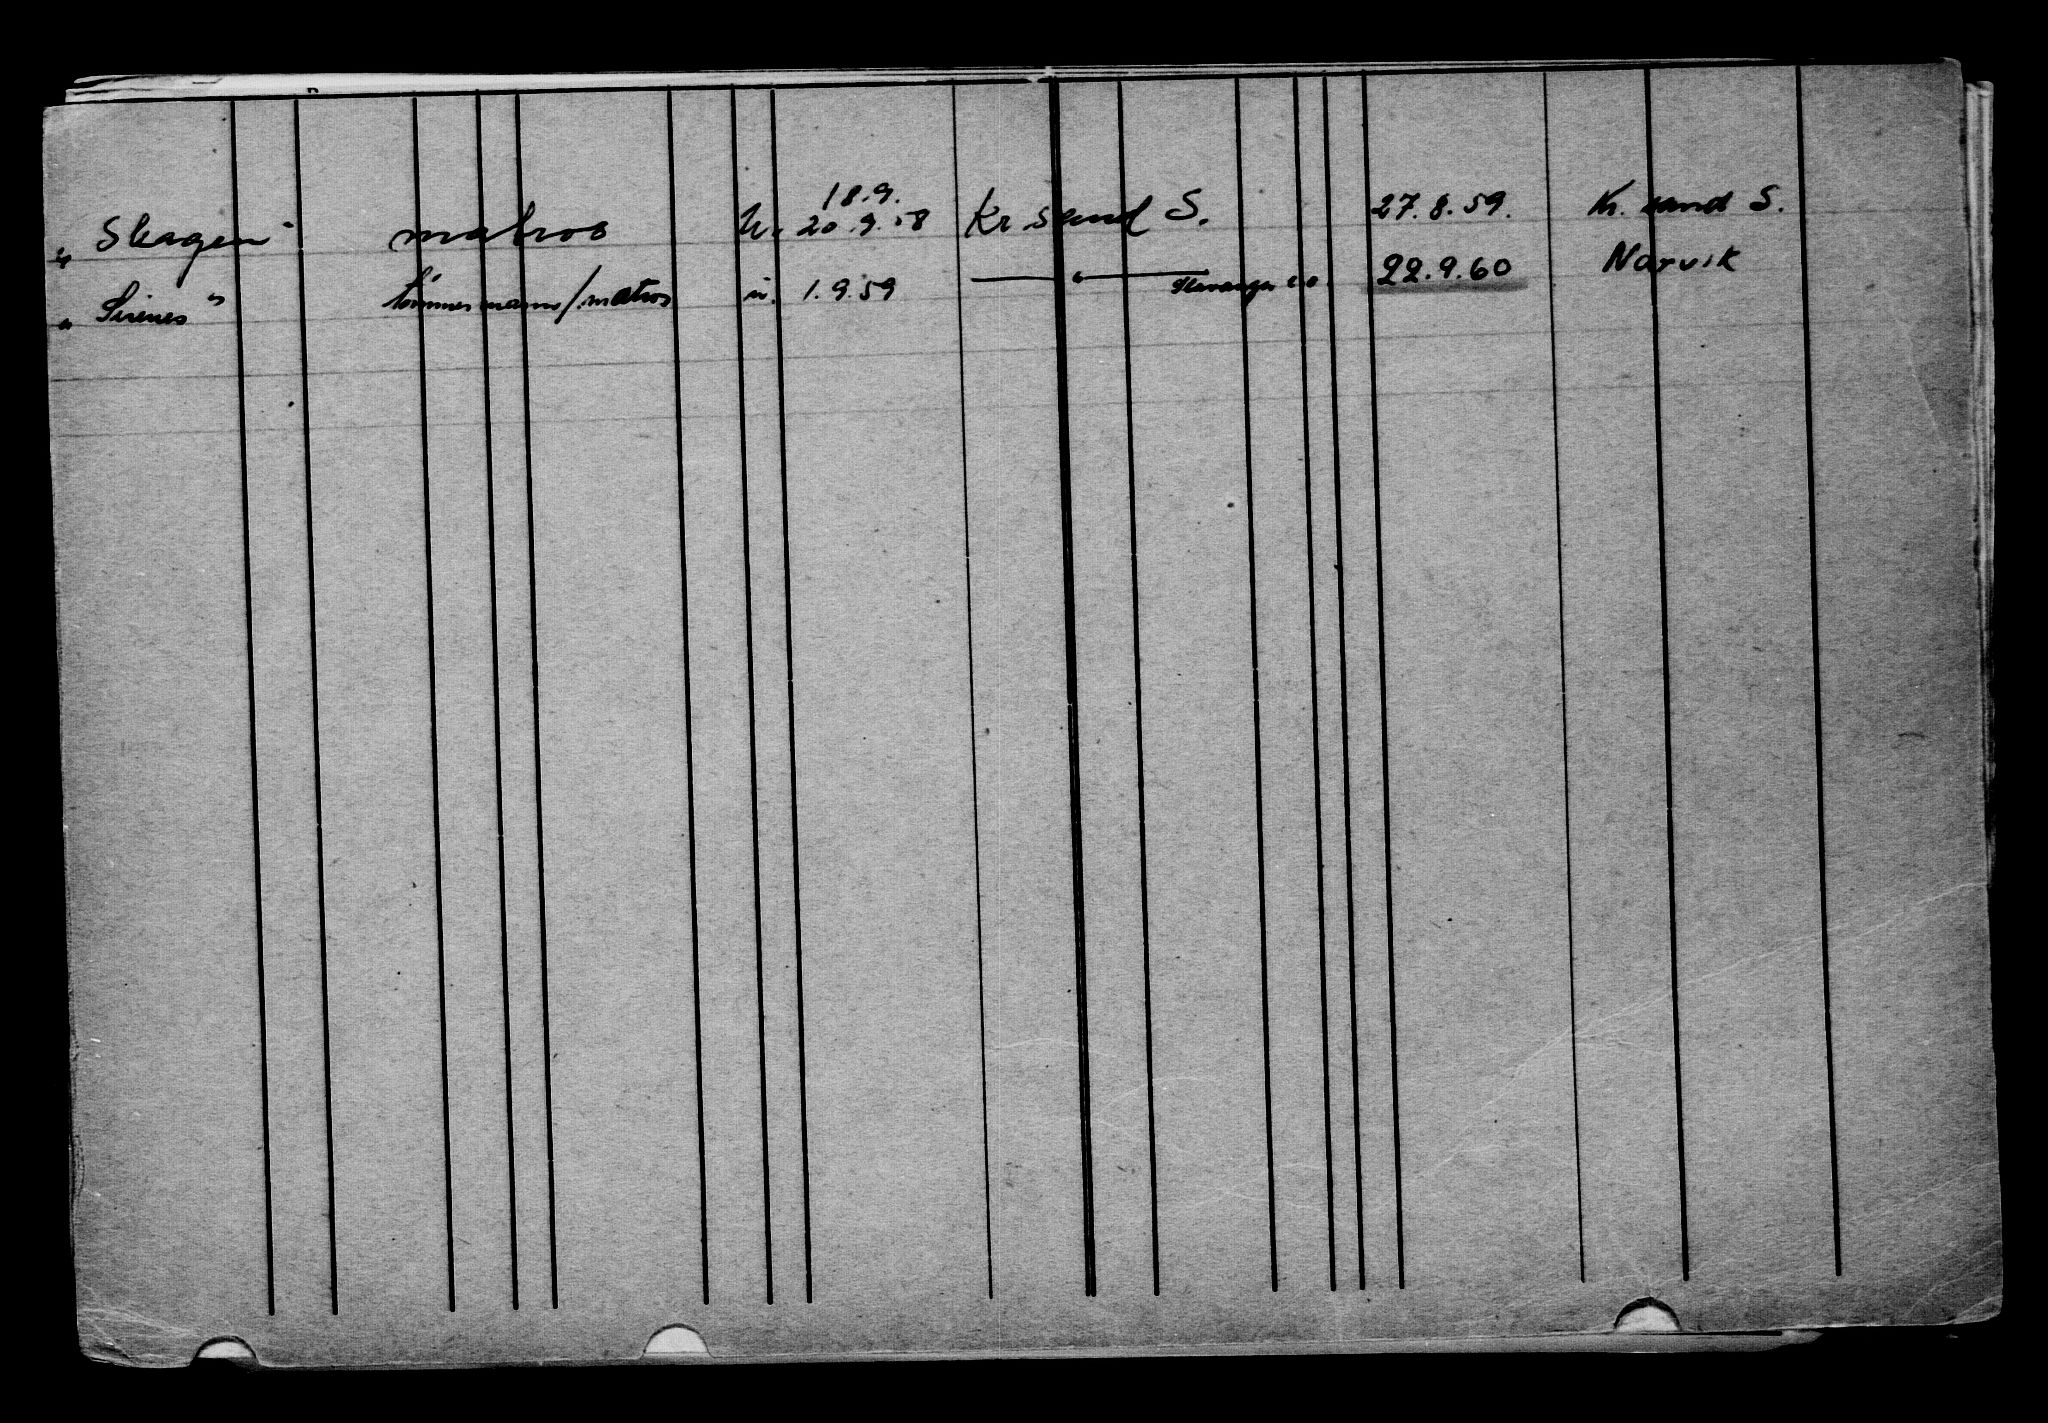 18.9.
„ Skagen" matros u. 20.9.58 Kr.sand S. 27.8.59. Kr.sand S.
„ Sirenes" tömmermann/matros u. 1.9.59 — " — 22.9.60 Narvik